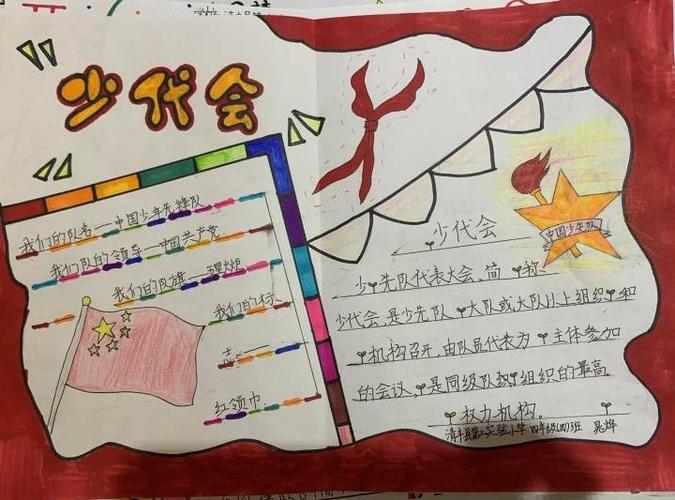 少代会
我们的队名——中国少年先锋队
我们队的领导——中国共产党
我们的队旗——星星火炬
我们的标
志——
红领巾
中国少先队
少代会
少先队代表大会,简称
少代会,是少先队大队或大队以上组织和
机构召开,由队员代表为主体参加
的会议,是同级队组织的最高
权力机构。
清丰县第二实验小学 四年级(四)班